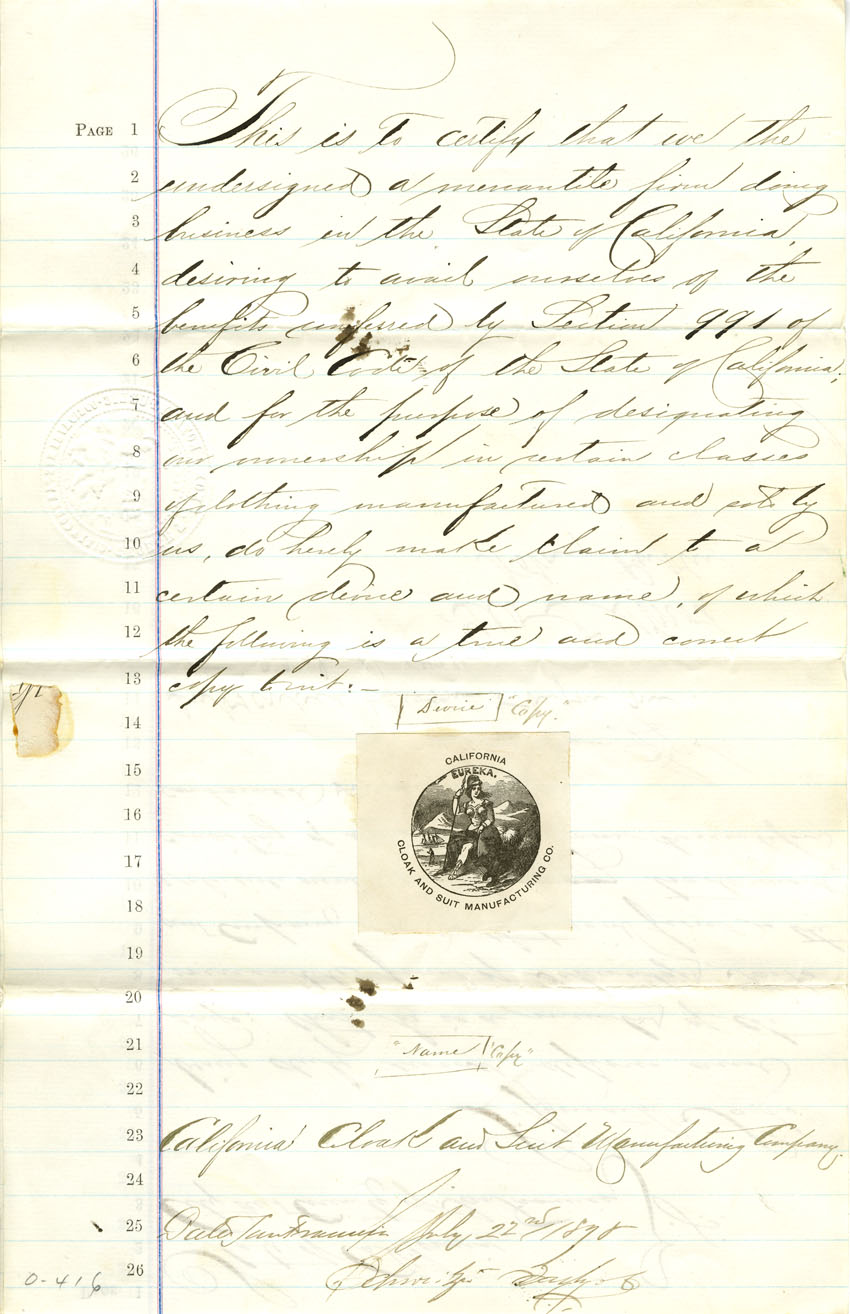 PAGE 1 This is to certify that we the
2 undersigned a mercantile firm doing
3 business in the State of California,
4 desiring to avail ourselves of the
5 benefits conferred by Section 991 of
6 the Civil Code of the State of California;
7 and for the purpose of designating
8 our ownership in certain classes
9 of clothing manufactured and sold by
10 us, do hereby make claim to a
11 certain devise and name, of which
12 the following is a true and correct
13 copy to wit:-
14 Devise "Copy."
15 CALIFORNIA
EUREKA.
16
17 CLOAK AND SUIT MANUFACTURING CO.
18
19
20
21 "Name" "Copy"
22
23 California Cloak and Suit Manufacturing Company.
24
25 Date San Francisco July 22nd 1878
26
0-416